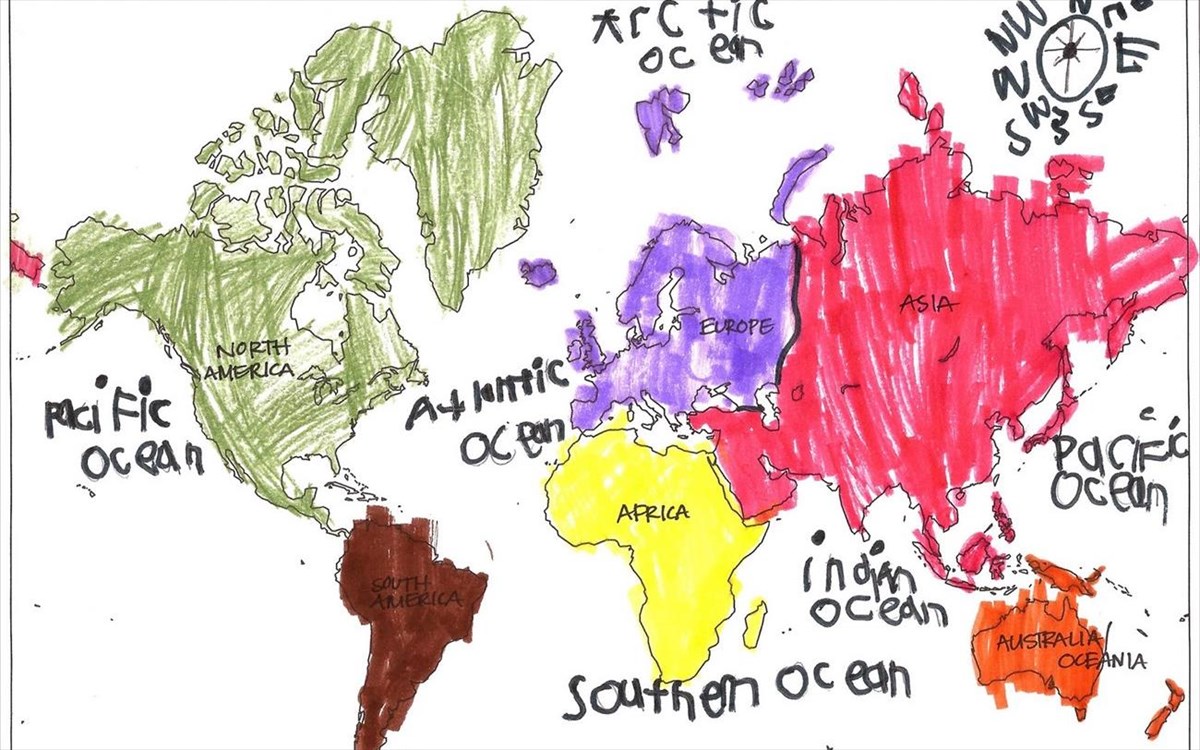 Arctic
ocean
N
NW
E
W
SW
S
SE
EUROPE
ASIA
NORTH
AMERICA
Atlantic
ocean
Pacific
ocean
Pacific
ocean
AFRICA
indian
ocean
SOUTH
AMERICA
AUSTRALIA/
OCEANIA
Southern ocean